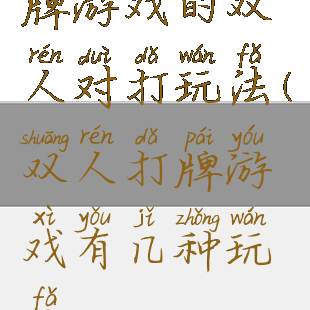 牌游戏的双
rén duì dǎ wán fǎ
人对打玩法(
shuāng rén dǎ pái yóu
双人打牌游
xì yǒu jǐ zhǒng wán
戏有几种玩
fǎ